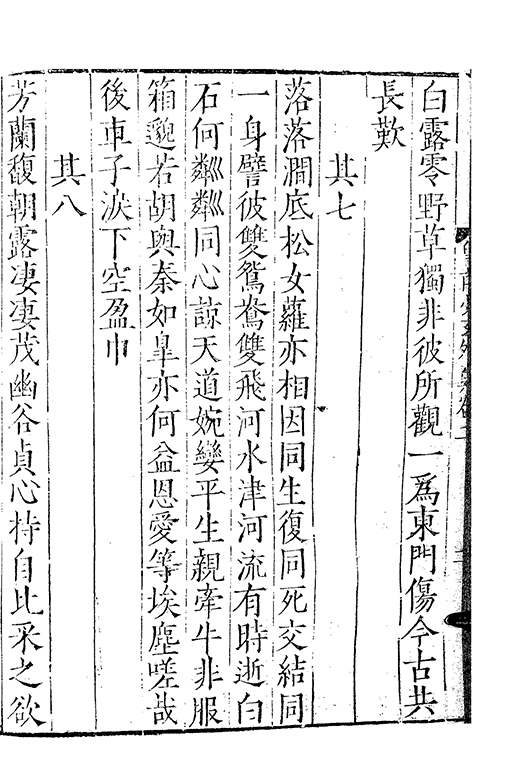 白露零野草獨非彼所觀一爲東門傷今古共
長歎
其七
落落澗底松女蘿亦相因同生復同死交結同
一身譬彼雙鴛鴦雙飛河水津河流有時逝白
石何粼粼同心諒天道婉孌平生親牽牛非服
箱邈若胡與秦如臯亦何益恩愛等埃塵嗟哉
後車子淚下空盈巾
其八
芳蘭馥朝露凄凄茂幽谷貞心持自比采之欲